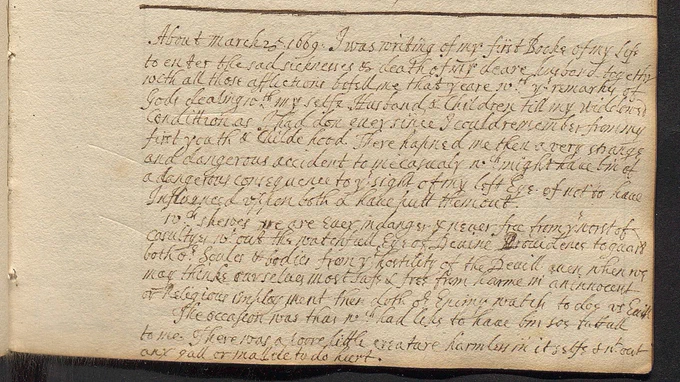 About March 25 1669. I was writing of my first Booke of my life
to enter the sad sicknesses & death of my deare husband, togeathr
with all those afflictions befell me that yeare wth ye remarks of
Gods dealing wth my selfe Husband & Children till my widdowed
Condittion as I had don ever since I could remember from my
first youth & Childe hood. There hapned me then a very strange
and dangerous accident to me casualy wch might have bin of
a dangerous consequence to ye sight of my left Eye if not to have
Influenced upon both & have putt them out
wch shewes we are Ever in danger & never free from ye worst of
casultys wth out the watchfull Eye of Devine Providence to guard
both or Soules & bodies from ye hostility of the Devill even when we
may thinke ourselves most safe & free from harme in an innocent
or Religious Imploy ment then doth or Enemy watch to doe us Evill
The occasion was that wch had less to have bin
to me. There was a poore little creature harmless in it selfe & wth out
any gall or malice to do hurt.